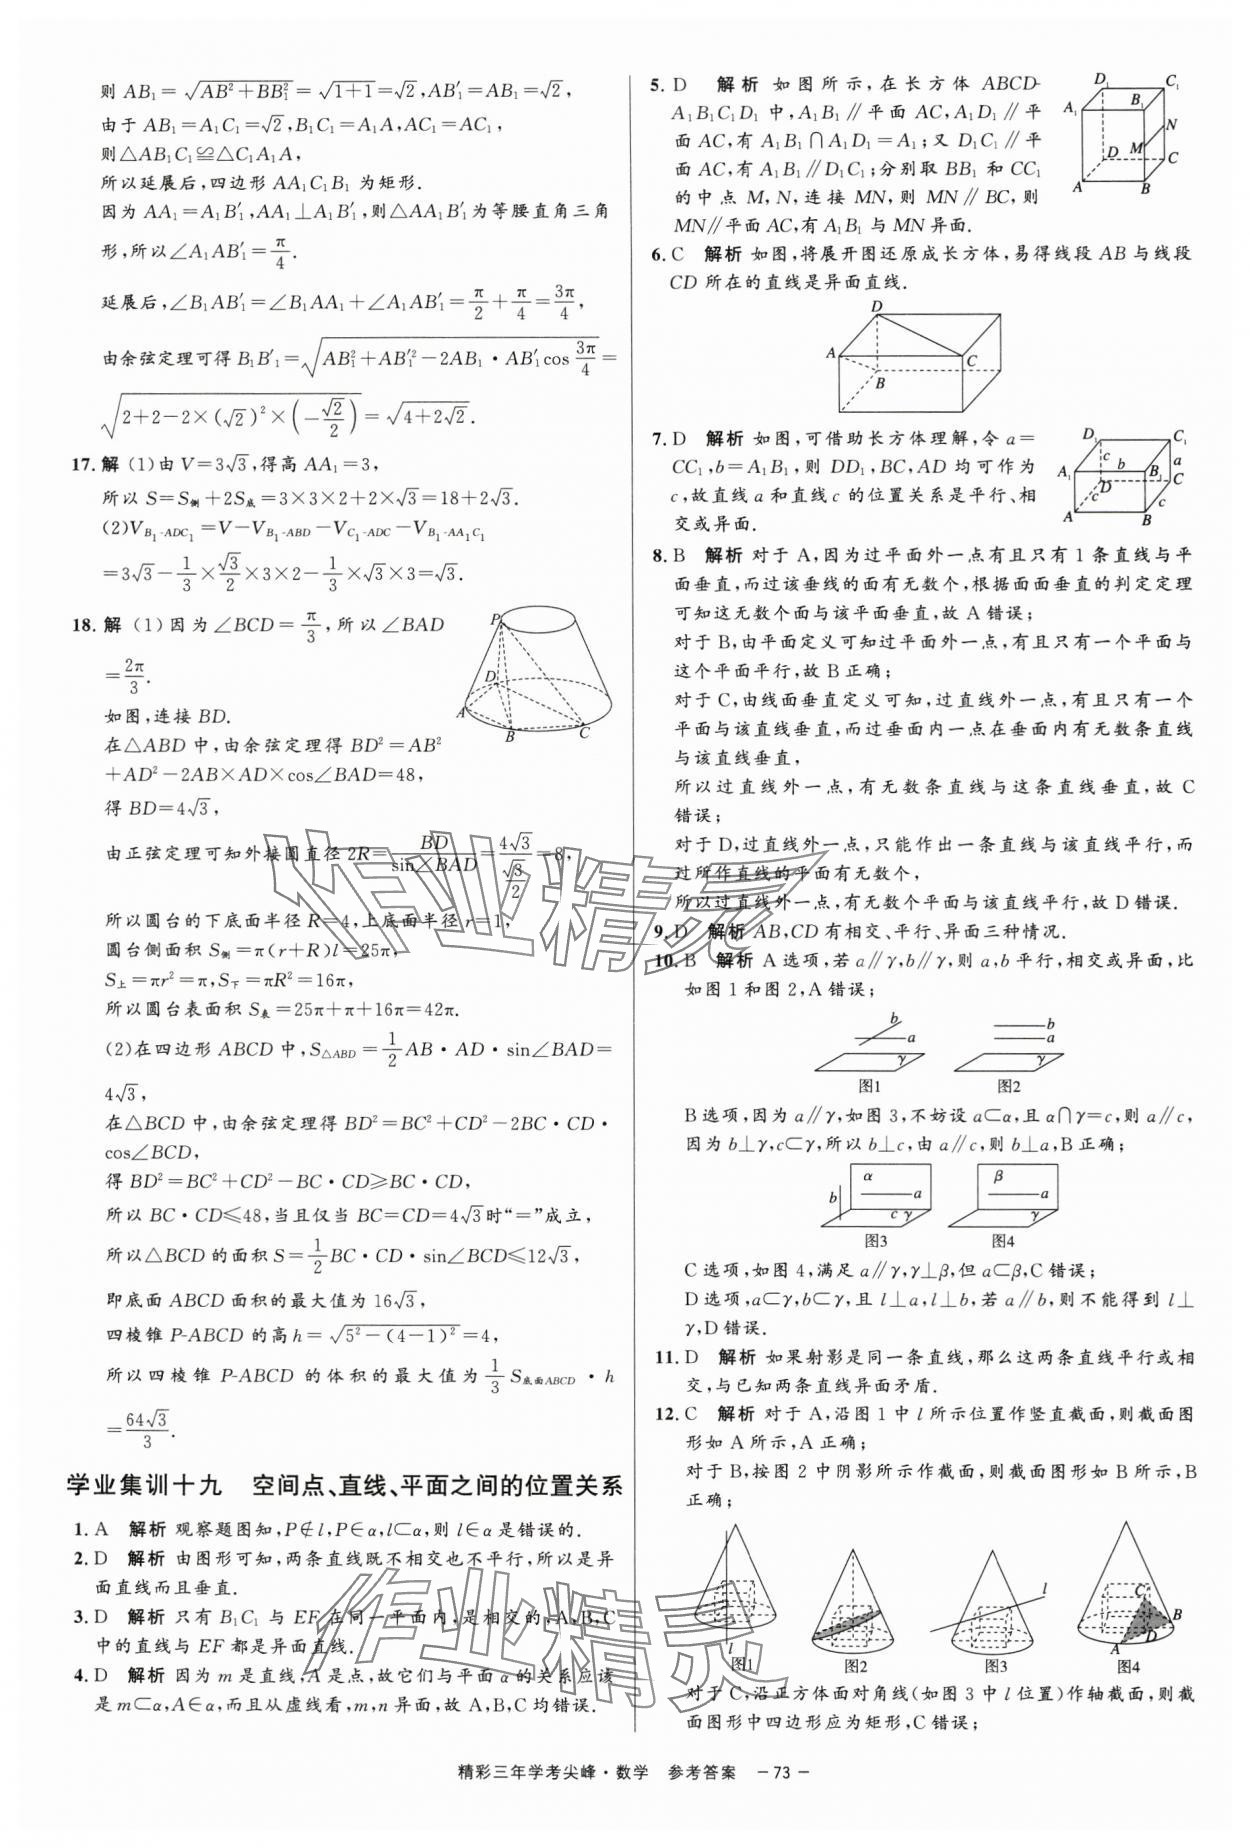 则 AB₁=√(AB²+BB₁²)=√(1+1)=√2,AB′₁=AB₁=√2,
由于 AB₁=A₁C₁=√2,B₁C₁=A₁A,AC₁=AC₁,
则△AB₁C₁≌△C₁A₁A,
所以延展后,四边形 AA₁C₁B₁ 为矩形.
因为 AA₁=A₁B′₁,AA₁⊥A₁B′₁,则△AA₁B′₁为等腰直角三角
形,所以∠A₁AB′₁=π/4.
延展后,∠B₁AB′₁=∠B₁AA₁+∠A₁AB′₁=π/2+π/4=3π/4,
由余弦定理可得 B₁B′₁=√(AB₁²+AB′₁²-2AB₁·AB′₁cos 3π/4)=
√(2+2-2×(√2)²×(-√2/2))=√(4+2√2).
17.解 (1)由 V=3√3,得高 AA₁=3,
所以 S=S侧+2S底=3×3×2+2×√3=18+2√3.
(2)V_{B₁-ADC₁}=V-V_{B₁-ABD}-V_{C₁-ADC}-V_{B₁-AA₁C₁}
=3√3-1/3×√3/2×3×2-1/3×√3×3=√3.
18.解 (1)因为∠BCD=π/3,所以∠BAD
=2π/3.
如图,连接 BD.
在△ABD 中,由余弦定理得 BD²=AB²
+AD²-2AB×AD×cos∠BAD=48,
得 BD=4√3,
由正弦定理可知外接圆直径 2R=BD/sin∠BAD=4√3/(√3/2)=8,
所以圆台的下底面半径 R=4,上底面半径 r=1,
圆台侧面积 S侧=π(r+R)l=25π,
S上=πr²=π,S下=πR²=16π,
所以圆台表面积 S表=25π+π+16π=42π.
(2)在四边形 ABCD 中,S△ABD=1/2 AB·AD·sin∠BAD=
4√3,
在△BCD 中,由余弦定理得 BD²=BC²+CD²-2BC·CD·
cos∠BCD,
得 BD²=BC²+CD²-BC·CD≥BC·CD,
所以 BC·CD≤48,当且仅当 BC=CD=4√3时“=”成立,
所以△BCD 的面积 S=1/2 BC·CD·sin∠BCD≤12√3,
即底面 ABCD 面积的最大值为 16√3,
四棱锥 P-ABCD 的高 h=√(5²-(4-1)²)=4,
所以四棱锥 P-ABCD 的体积的最大值为 1/3 S底面ABCD·h
=64√3/3.
P
D
A
B
C
学业集训十九 空间点、直线、平面之间的位置关系
1. A 解析 观察题图知,P∉l,P∈α,l⊂α,则 l∈α 是错误的.
2. D 解析 由图形可知,两条直线既不相交也不平行,所以是异
面直线而且垂直.
3. D 解析 只有 B₁C₁ 与 EF 在同一平面内,是相交的,A,B,C
中的直线与 EF 都是异面直线.
4. D 解析 因为 m 是直线,A 是点,故它们与平面 α 的关系应该
是 m⊂α,A∈α,而且从虚线看,m,n 异面,故 A,B,C 均错误.
5. D 解析 如图所示,在长方体 ABCD-
A₁B₁C₁D₁ 中,A₁B₁∥平面 AC,A₁D₁∥平
面 AC,有 A₁B₁∩A₁D₁=A₁;又 D₁C₁∥平
面 AC,有 A₁B₁∥D₁C₁;分别取 BB₁ 和 CC₁
的中点 M,N,连接 MN,则 MN∥BC,则
MN∥平面 AC,有 A₁B₁与 MN 异面.
D₁
C₁
A₁
B₁
N
M
D
C
A
B
6. C 解析 如图,将展开图还原成长方体,易得线段 AB 与线段
CD 所在的直线是异面直线.
D
A
C
B
7. D 解析 如图,可借助长方体理解,令 a=
CC₁,b=A₁B₁,则 DD₁,BC,AD 均可作为
c,故直线 a 和直线 c 的位置关系是平行、相
交或异面.
D₁
C₁
c
b
a
A₁
B₁
D
C
c
c
A
B
8. B 解析 对于 A,因为过平面外一点有且只有 1 条直线与平
面垂直,而过该垂线的面有无数个,根据面面垂直的判定定理
可知这无数个面与该平面垂直,故 A 错误;
对于 B,由平面定义可知过平面外一点,有且只有一个平面与
这个平面平行,故 B 正确;
对于 C,由线面垂直定义可知,过直线外一点,有且只有一个
平面与该直线垂直,而过垂面内一点在垂面内有无数条直线
与该直线垂直,
所以过直线外一点,有无数条直线与这条直线垂直,故 C
错误;
对于 D,过直线外一点,只能作出一条直线与该直线平行,而
过所作直线的平面有无数个,
所以过直线外一点,有无数个平面与该直线平行,故 D 错误.
9. D 解析 AB,CD 有相交、平行、异面三种情况.
10. B 解析 A 选项,若 a∥γ,b∥γ,则 a,b 平行,相交或异面,比
如图 1 和图 2,A 错误;
b
a
γ
图1
b
a
γ
图2
B 选项,因为 a∥γ,如图 3,不妨设 a⊂α,且 α∩γ=c,则 a∥c,
因为 b⊥γ,c⊂γ,所以 b⊥c,由 a∥c,则 b⊥a,B 正确;
α
b
a
c γ
图3
β
a
γ
图4
C 选项,如图 4,满足 a∥γ,γ⊥β,但 a⊂β,C 错误;
D 选项,a⊂γ,b⊂γ,且 l⊥a,l⊥b,若 a∥b,则不能得到 l⊥
γ,D 错误.
11. D 解析 如果射影是同一条直线,那么这两条直线平行或相
交,与已知两条直线异面矛盾.
12. C 解析 对于 A,沿图 1 中 l 所示位置作竖直截面,则截面图
形如 A 所示,A 正确;
对于 B,按图 2 中阴影所示作截面,则截面图形如 B 所示,B
正确;
l
图1
图2
l
图3
C
B
D
A
图4
对于 C,沿正方体面对角线(如图 3 中 l 位置)作轴截面,则截
面图形中四边形应为矩形,C 错误;
作业精灵
作业精灵
精彩三年学考尖峰·数学 参考答案 -73-